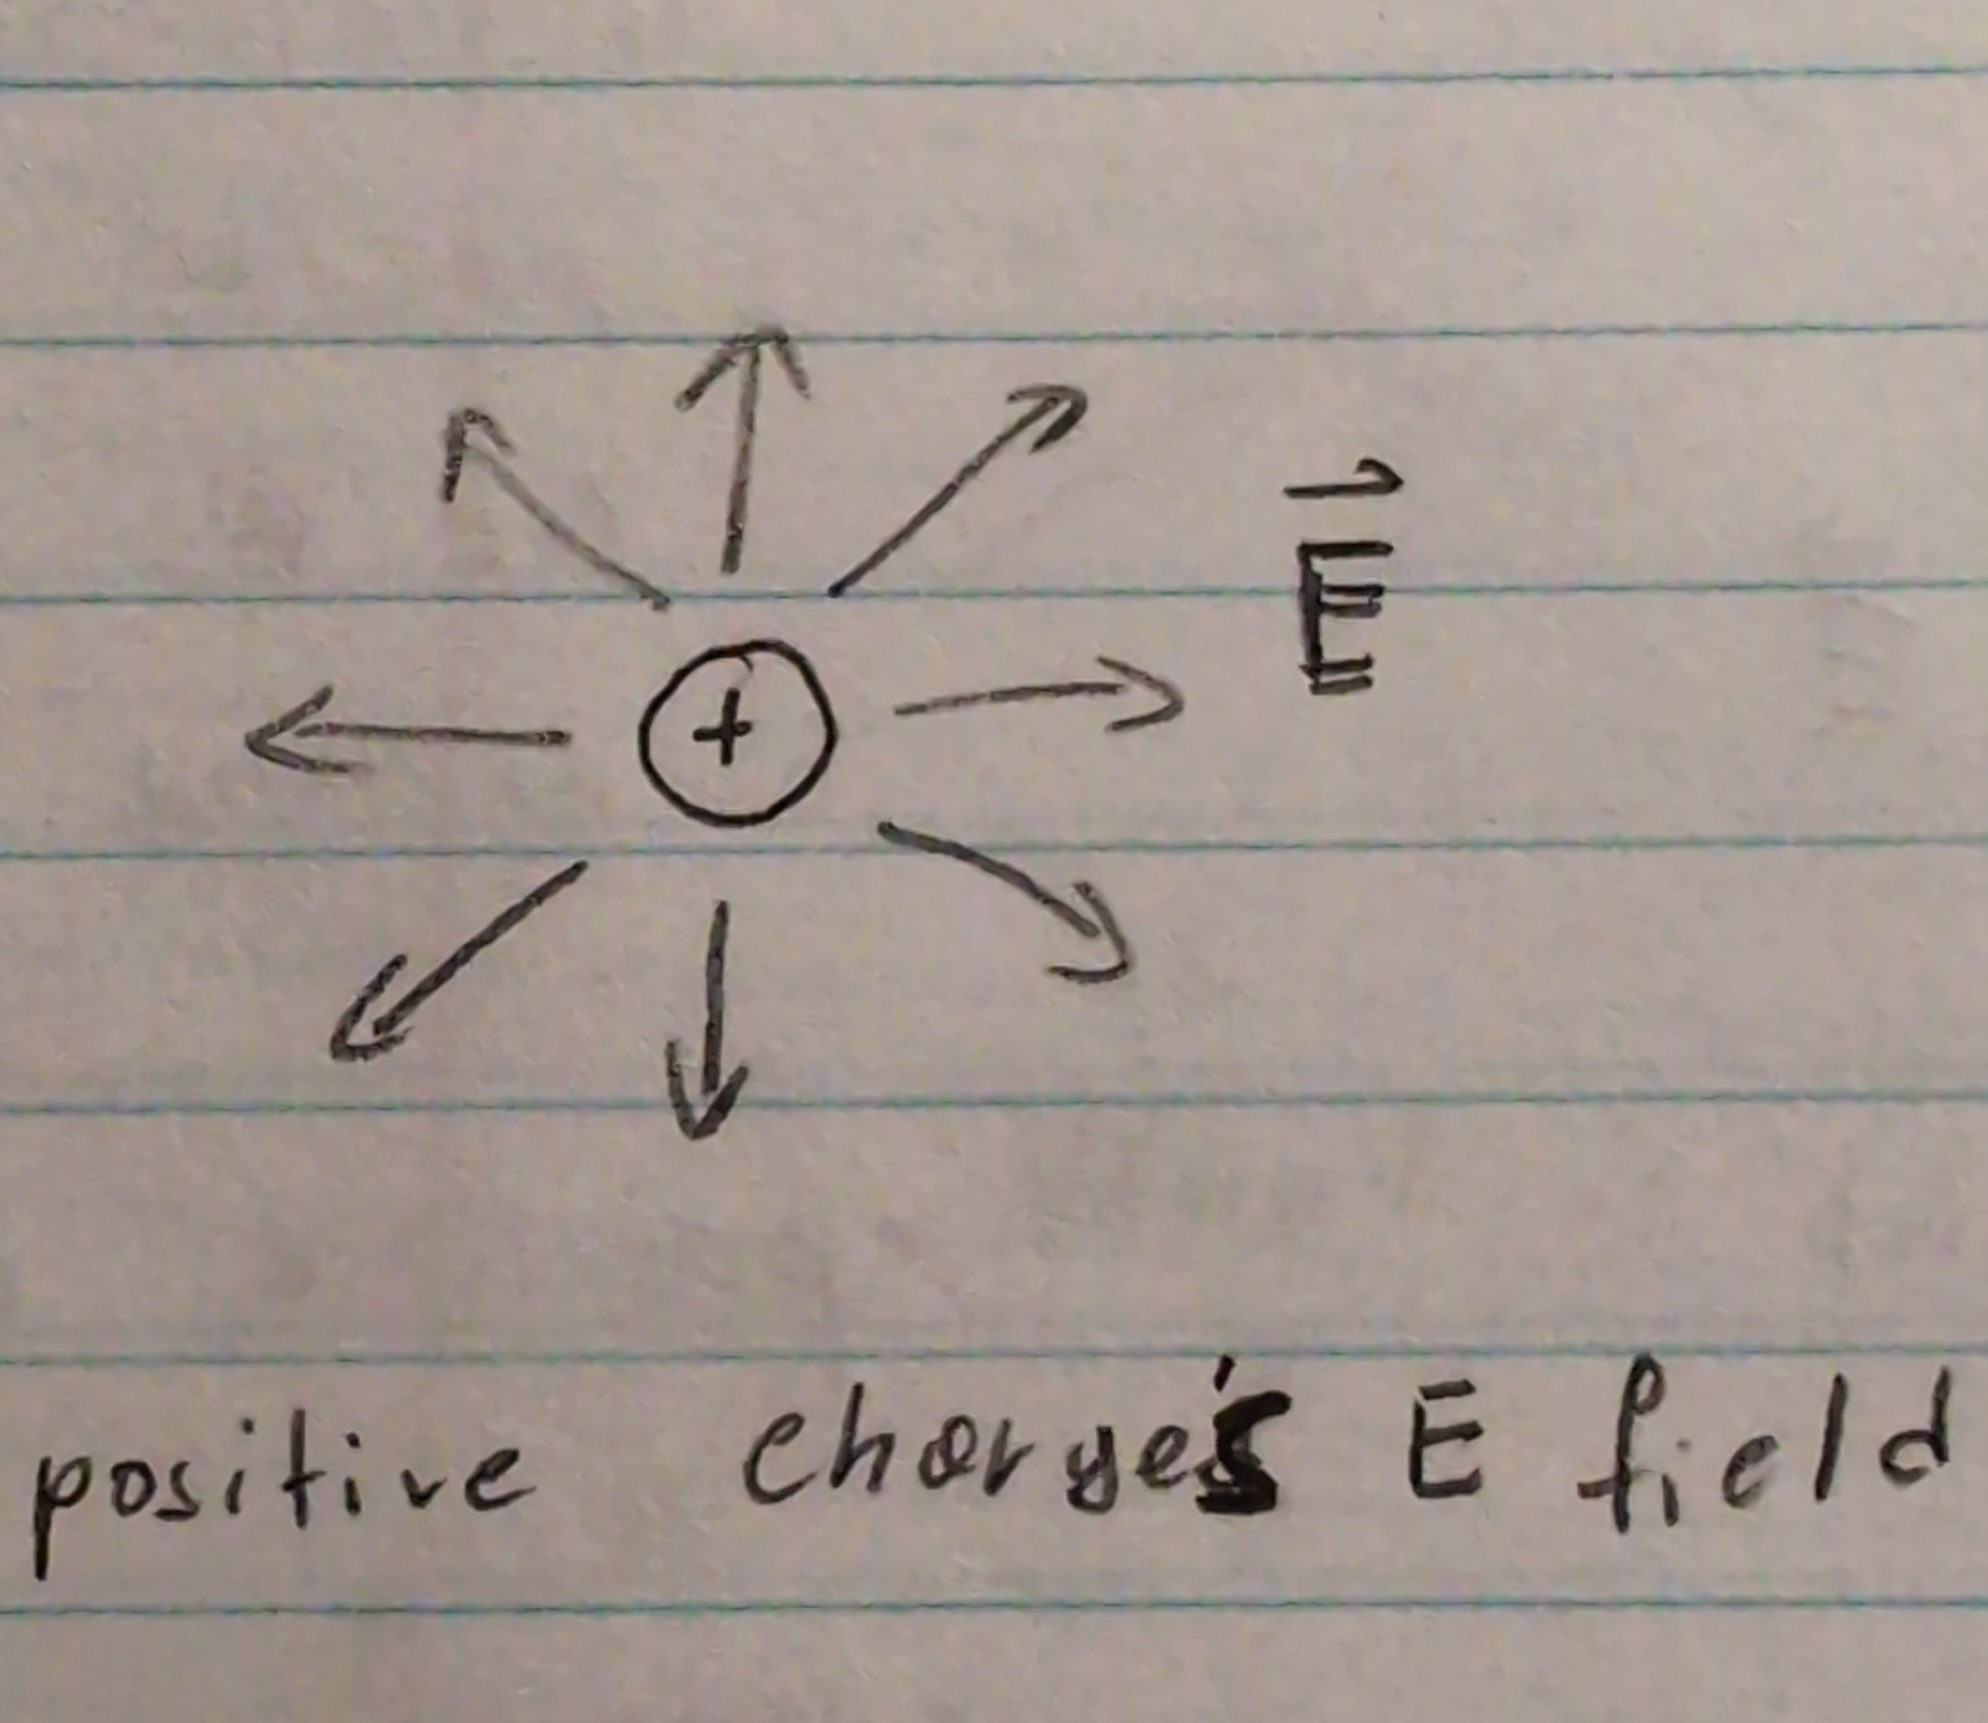 E
+
positive charge's E field